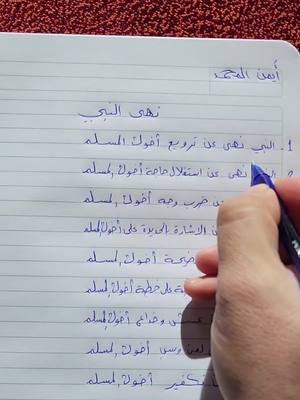 أيمن المحمد
نهى النبي
1. النبي نهى عن ترويع أخوك المسلم
نهى عن استغلال حاجة أخوك المسلم
ضرب وجه أخوك المسلم
الاشارة بالحديدة على أخوك المسلم
أخوك المسلم
على خطبة أخوك المسلم
غش وخداع أخوك المسلم
لعن وسب أخوك المسلم
تكفير أخوك المسلم